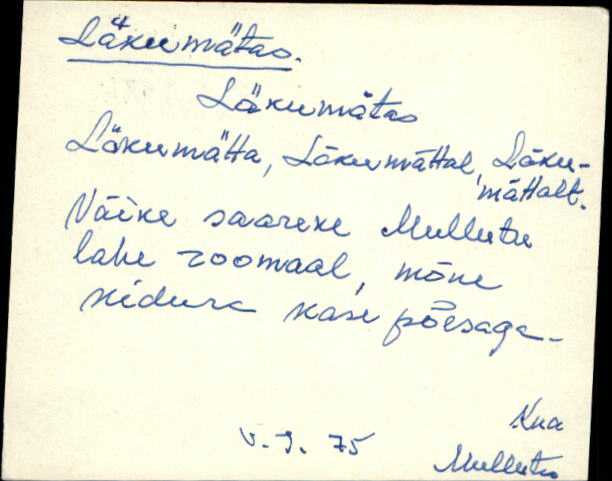 Läkumätas.
Läkumätas
Läkumätta, Läkumättal, Läku-
mättalt.
Väike saareke Mullutu
lahe roomaal, mõne
kidura kase põõsaga.
Kua
V. J. 75
Mullutu